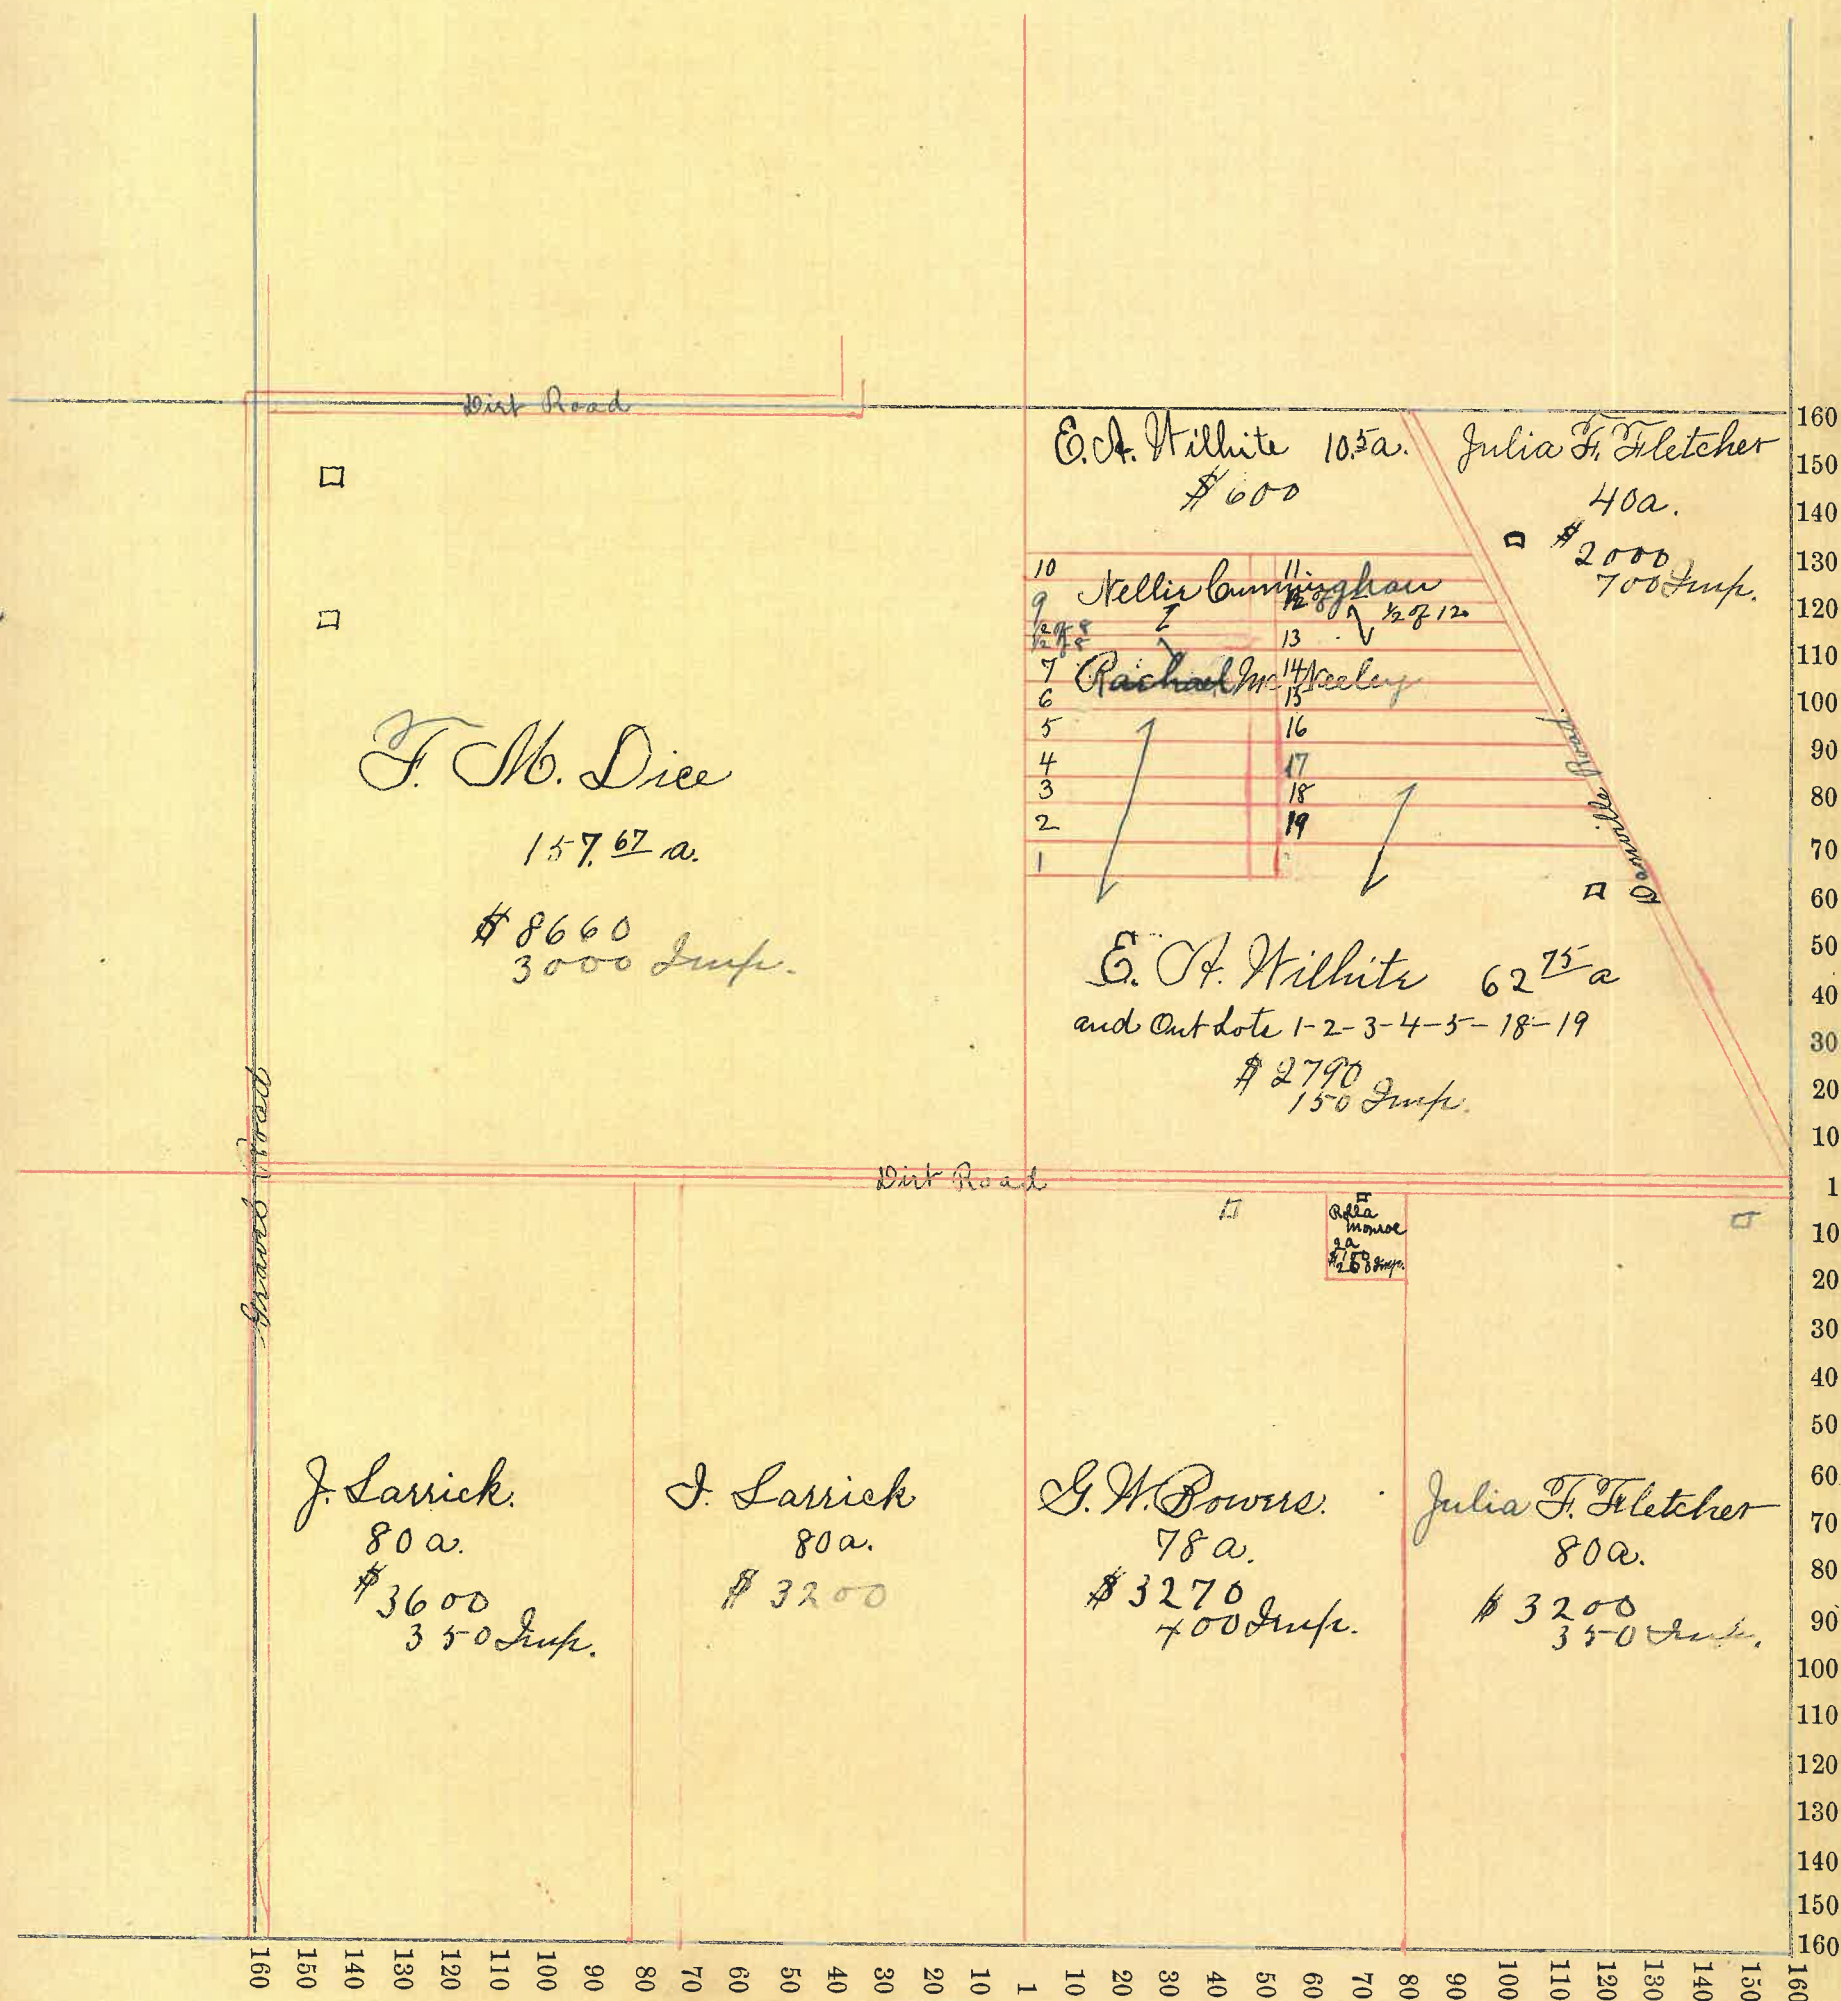 Dirt Road
E. A. Wilhite 10.5a.
$600
Julia F. Fletcher
40a.
$2000
700 Imp.
10
9
1/2 of 8
1/2 of 8
7
6
5
4
3
2
1
Nellie Cunninghan
11.
1/2 of 12
13
14
15
16
17
18
19
Rachael McNeeley
Dannville Road.
F. M. Dice
157.67 a.
$8660
3000 Imp.
E. A. Wilhite 62 75 a
and Out Lots 1-2-3-4-5-18-19
$2790
150 Imp.
Gravel Road
Dirt Road
Rolla
Monroe
2a
$100
260 Imp.
J. Larrick.
80 a.
$3600
350 Imp.
J. Larrick
80a.
$3200
G. W. Bowers.
78 a.
$3270
400 Imp.
Julia F. Fletcher
80a.
$3200
350 Imp.
160
150
140
130
120
110
100
90
80
70
60
50
40
30
20
10
1
10
20
30
40
50
60
70
80
90
100
110
120
130
140
150
160
160 150 140 130 120 110 100 90 80 70 60 50 40 30 20 10 1 10 20 30 40 50 60 70 80 90 100 110 120 130 140 150 160